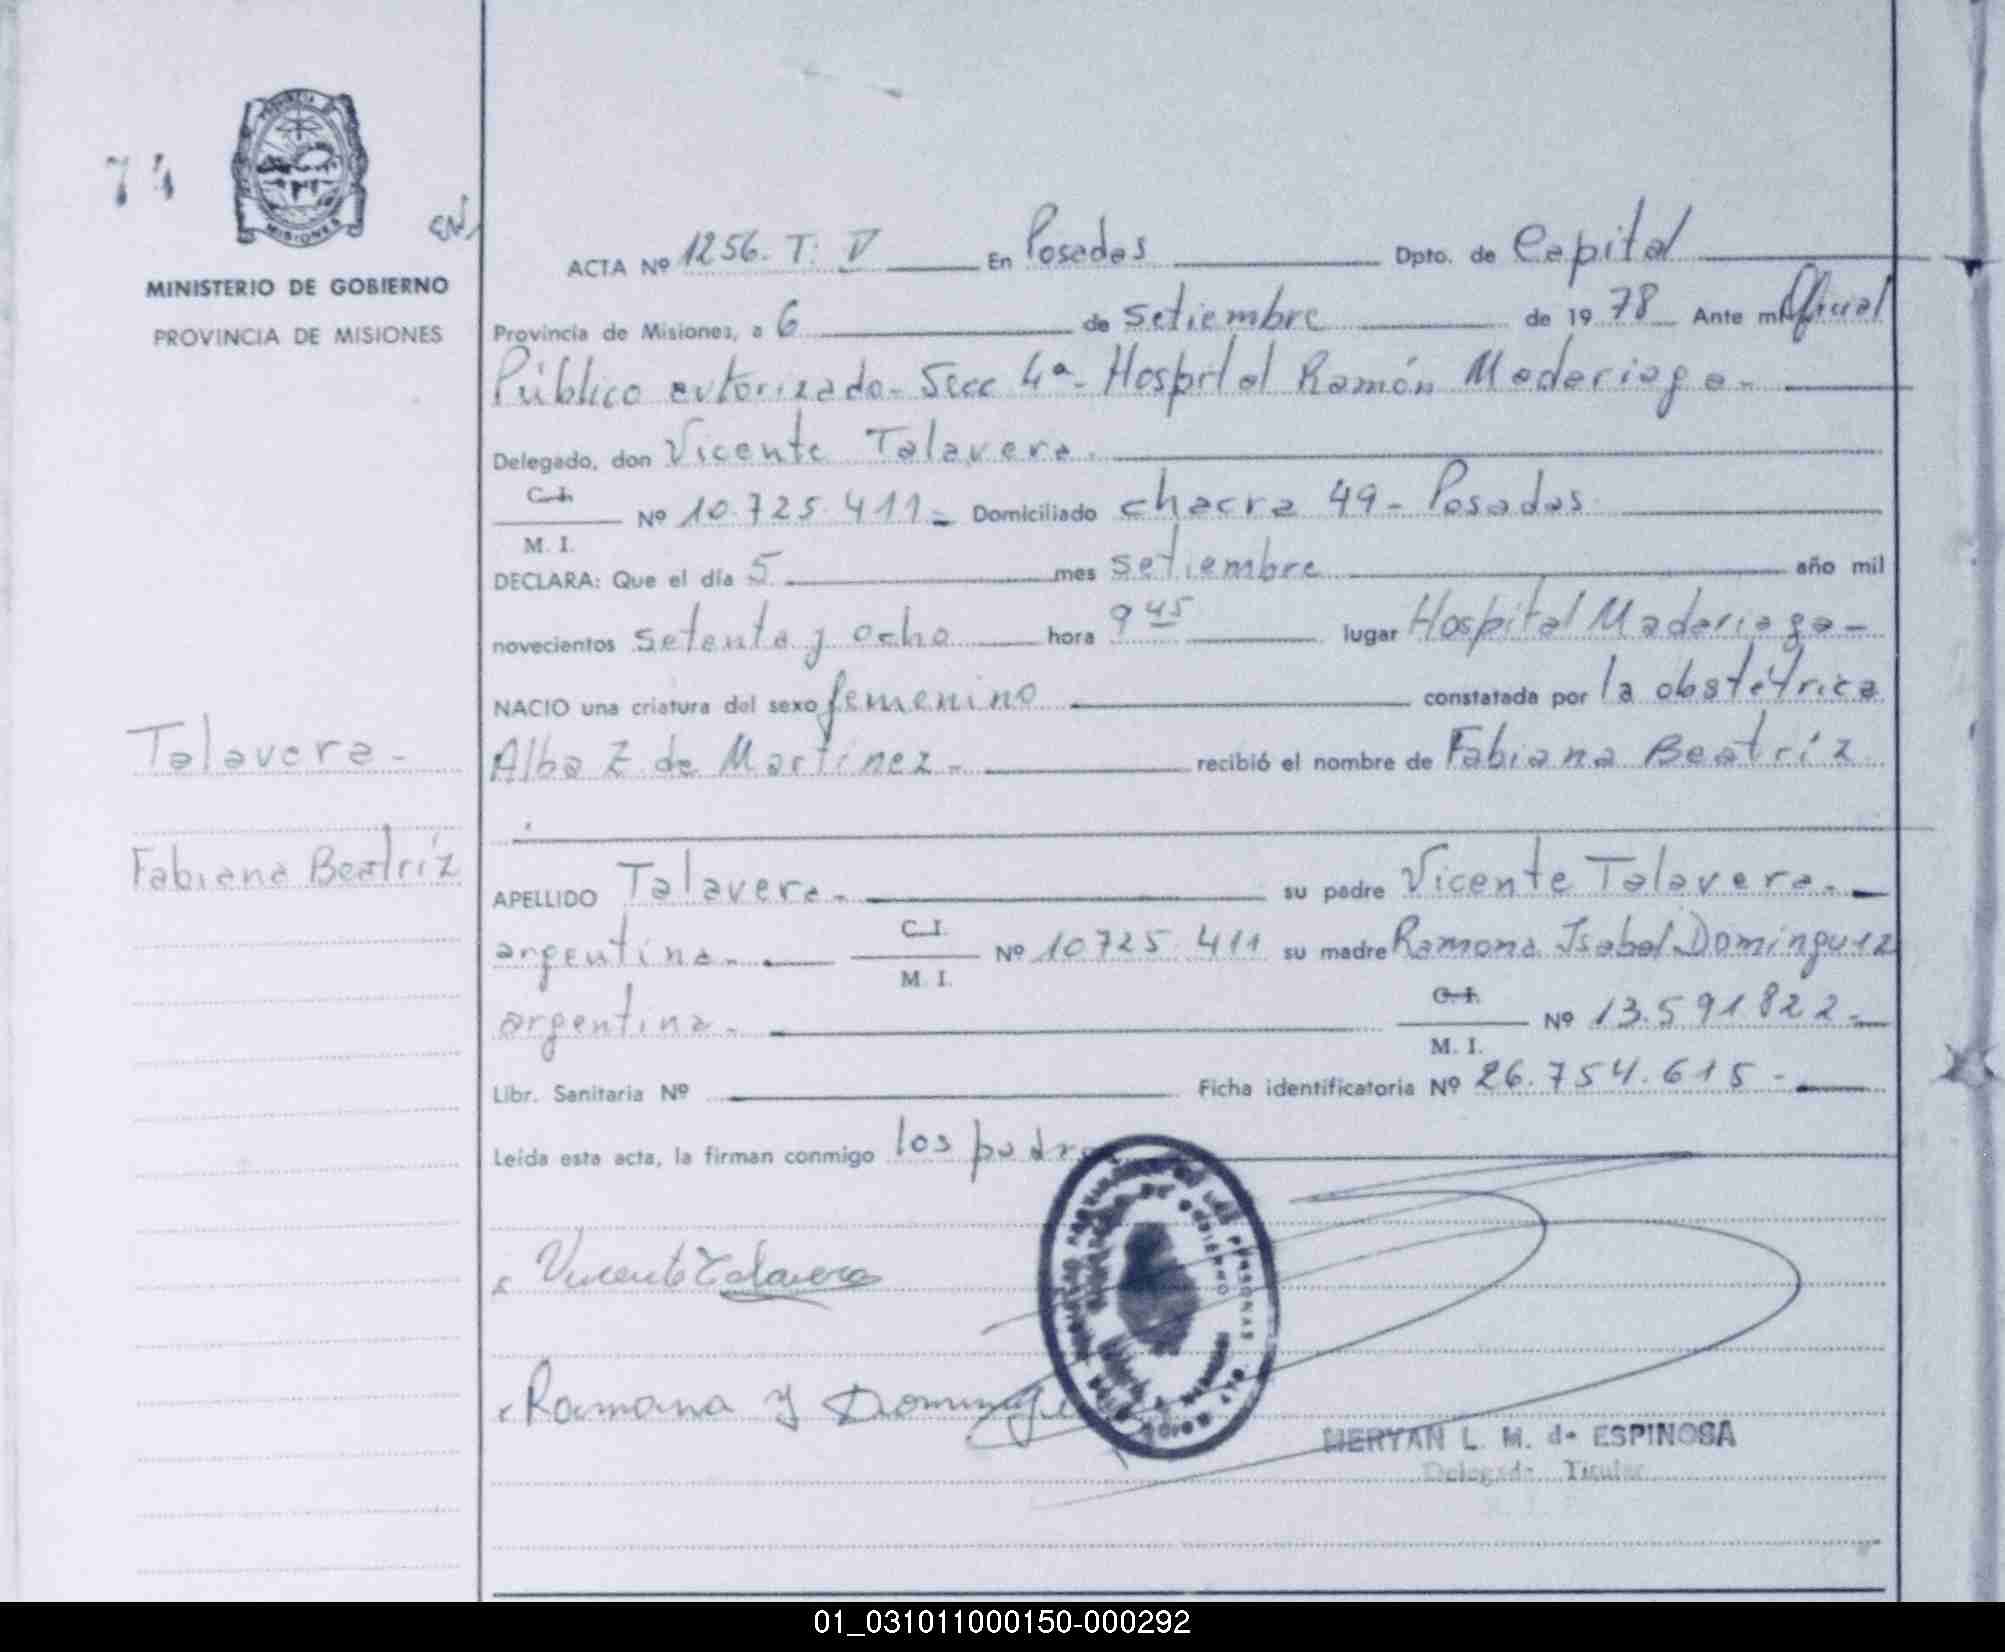 74
PROVINCIA DE
MISIONES
MINISTERIO DE GOBIERNO
PROVINCIA DE MISIONES
Talavera-
Fabiana Beatríz
ACTA Nº 1256. T: V En Posadas Dpto. de Capital
Provincia de Misiones, a 6 de setiembre de 1978 Ante mi Oficial
Público autorizado- Secc 4ª- Hospital Ramón Madariaga-
Delegado, don Vicente Talavera.
C. I.
Nº 10.725.411- Domiciliado chacra 49- Posadas
M. I.
DECLARA: Que el día 5 mes setiembre año mil
novecientos setenta y ocho hora 9 45 lugar Hospital Madariaga-
NACIO una criatura del sexo femenino constatada por la obstétrica
Alba Z. de Martínez- recibió el nombre de Fabiana Beatríz
APELLIDO Talavera- su padre Vicente Talavera-
C. I.
argentino- Nº 10725.411 su madre Ramona Isabel Domínguez
M. I.
C. I.
argentina- Nº 13.591822-
M. I.
Libr. Sanitaria Nº Ficha identificatoria Nº 26.754.615-
Leída esta acta, la firman conmigo los padres
Vicente Talavera
Ramona Y Dominguez
DE LAS PERSONAS
DE GOBIERNO
MERYAN L. M. de ESPINOSA
Delegada Titular
01_031011000150-000292